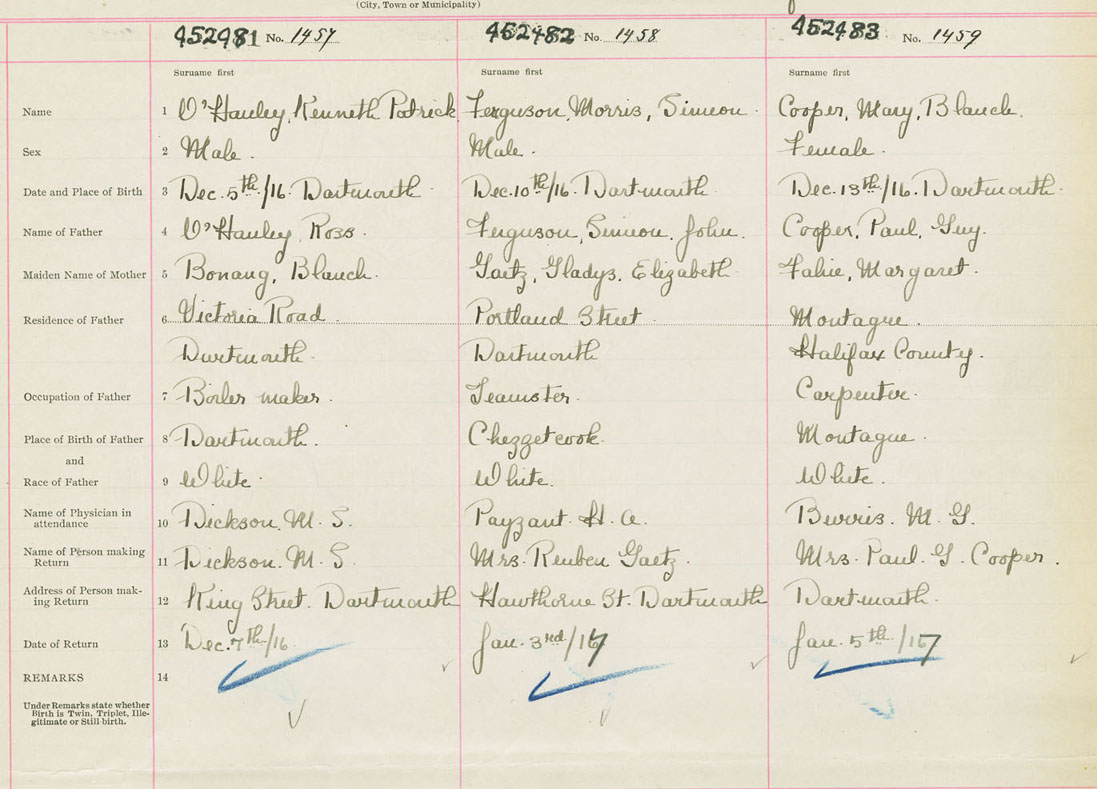 (City, Town or Municipality)
452481 No. 1457 452482 No. 1458 452483 No. 1459
Surname first Surname first Surname first
Name 1 O'Hanley, Kenneth Patrick Ferguson, Morris, Simeon. Cooper, Mary, Blanch.
Sex 2 Male. Male. Female.
Date and Place of Birth 3 Dec. 5th/16. Dartmouth. Dec. 10th/16. Dartmouth. Dec. 13th/16. Dartmouth.
Name of Father 4 O'Hanley, Ross. Ferguson, Simeon, John. Cooper, Paul, Guy.
Maiden Name of Mother 5 Bonang, Blanch. Gaetz, Gladys, Elizabeth. Fahie, Margaret.
Residence of Father 6 Victoria Road. Portland Street. Montague.
Dartmouth. Dartmouth Halifax County.
Occupation of Father 7 Boiler maker. Teamster. Carpenter.
Place of Birth of Father 8 Dartmouth. Chezzetcook. Montague.
and
Race of Father 9 White. White. White.
Name of Physician in attendance 10 Dickson. M. S. Payzant. H. A. Burris. M. G.
Name of Person making Return 11 Dickson. M. S. Mrs. Reuben Gaetz. Mrs. Paul. G. Cooper.
Address of Person making Return 12 King Street. Dartmouth Hawthorne St. Dartmouth Dartmouth.
Date of Return 13 Dec. 7th/16. Jan. 3rd/17 Jan. 5th/17
REMARKS 14
Under Remarks state whether
Birth is Twin, Triplet, Ille-
gitimate or Still birth.